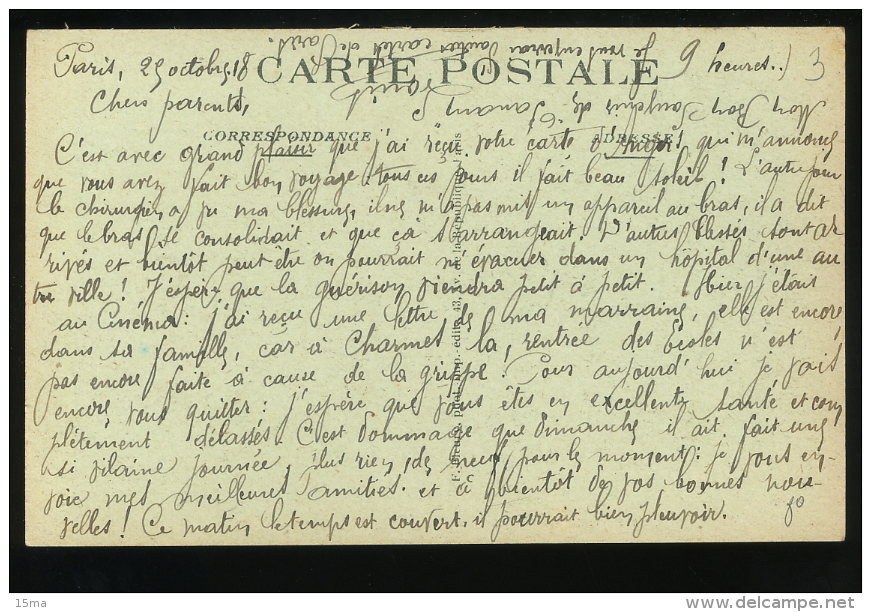 Je vous enverrai d'autres cartes de Paris.
Paris, 25 octobre 18
CARTE POSTALE
9 heures.
3
Chers parents,
Louis
Mon bon souvenir de
CORRESPONDANCE
ADRESSE
C'est avec grand plaisir que j'ai reçu votre carte d'Angers, qui m'annonce
que vous avez fait bon voyage. tous ces jours il fait beau soleil! L'autre jour
le chirurgien a vu ma blessure, il ne m'a pas mis un appareil au bras, il a dit
que le bras se consolidait et que çà s'arrangeait. D'autres blessés sont ar
rivés et bientôt peut être on pourrait m'évacuer dans un hôpital d'une au
tre ville! J'espère que la guérison viendra petit à petit. Hier j'étais
au Cinéma: j'ai reçu une lettre de ma marraine, elle est encore
dans sa famille, car à Charmes la rentrée des écoles n'est
pas encore faite à cause de la grippe! Pour aujourd'hui je vais
encore vous quitter: j'espère que vous êtes en excellente santé et com
plètement délassés. C'est dommage que dimanche il ait fait une
si vilaine journée. Plus rien de neuf pour le moment: je vous en-
voie mes meilleures amitiés. et à bientôt de vos bonnes nou-
velles! Ce matin le temps est couvert, il pourrait bien pleuvoir.
phot. imp.-édit., 43, de la République,
15ma
delcampe.net